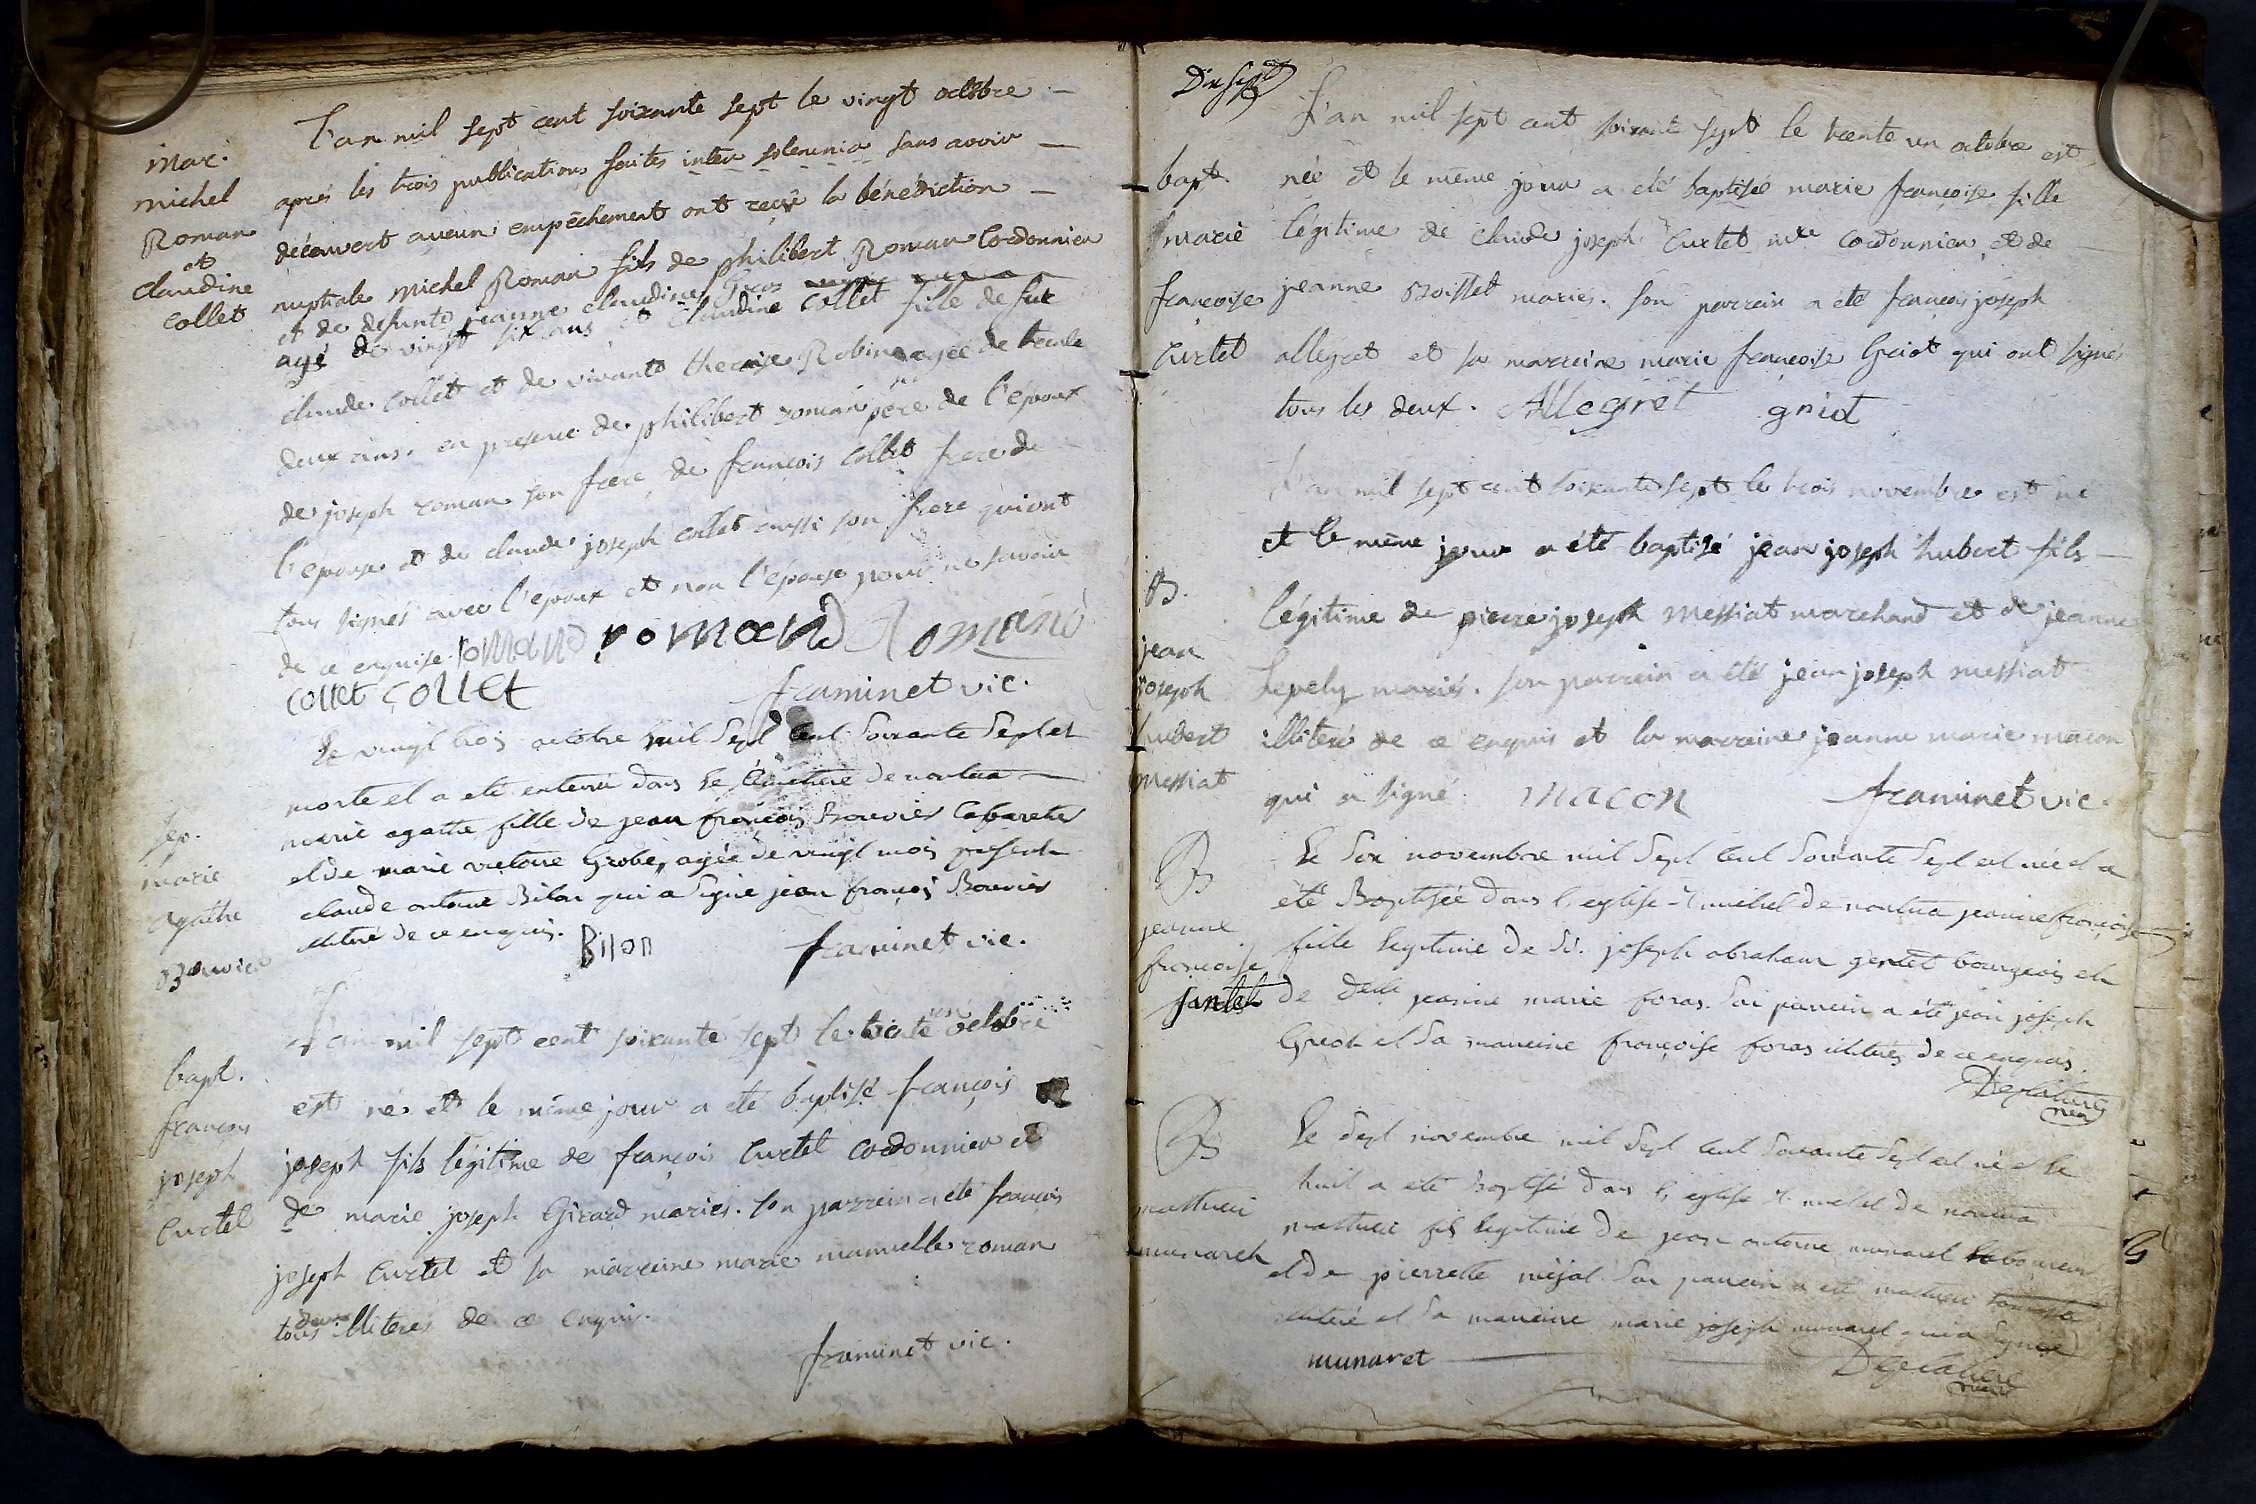 mar.
michel
Roman
et
claudine
collet
L'an mil sept cent soixante sept le vingt octobre
aprés les trois publications faites inter solemnia sans avoir
découvert aucun empêchement ont reçûe la bénédiction
nuptiale michel Roman fils de philibert Roman Cordonnier
et de defunte jeanne claudine Gros
agé de vingt six ans et claudine Collet fille de fut
claude Collet et de vivante therese Robin agée de trente
deux ans. en presence de philibert roman père de l'époux
de joseph roman son frere, de françois Collet frere de
l'epouse et de claude joseph collet aussi son frere qui ont
tous signés avec l'epoux et non l'épouse pour ne savoir
de ce enquise. romand romand Romand
Collet Collet framinet vic.
Sep.
marie
agathe
Bouvier
Le vingt trois octobre mil Sept Cent Soixante Sept est
morte et a été enterrée dans le Cimetiere de nantua
marie agathe fille de jean françois Bouvier Cabaretier
et de marie victoire Grobé, agée de vingt mois present
claude antoine Bilon qui a Signé jean françois Bouvier
illiteré de ce enquis. Bilon framinet vic.
bapt.
françois
joseph
Curtet
L'an mil sept cent soixante sept le trente un octobre
est né et le même jour a été baptisé françois
joseph fils légitime de françois Curtet cordonnier et
de marie joseph Girard mariés. son parrein a été françois
joseph Curtet et sa marreine marie manuelle roman
tous deux illiterés de ce enquis.
framinet vic.
Dix sept
bapt.
marie
françoise
Curtet
L'an mil sept cent soixante sept le trente un octobre est
née et le même jour a été baptisée marie françoise fille
légitime de claude joseph Curtet mtre cordonnier et de
jeanne Boisset mariés. son parrein a été françois joseph
allegret et sa marreine marie françoise Griot qui ont signés
tous les deux. Allegret griot
B.
jean
joseph
hubert
messiat
L'an mil sept cent soixante sept le trois novembre est né
et le même jour a été baptisé jean joseph hubert fils
légitime de pierre joseph Messiat marchand et de jeanne
mariés. son parrein a été jean joseph messiat
illiteré de ce enquis et la marreine jeanne marie macon
qui a signé. macon framinet vic.
B
jeanne
françoise
jantet
Le Six novembre mil Sept Cent Soixante Sept est née et a
été Baptisée dans l'eglise St michel de nantua jeanne françoise
fille legitime de Sr. joseph abraham gentet bourgeois et
de delle jeanne marie foras. Son parrein a été jean joseph
Griot et Sa marreine françoise foras illiterés de ce enquis.
B
mathieu
munaret
Le Sept novembre mil Sept Cent Soixante Sept est né et le
huit a été baptisé dans l'eglise St michel de nantua
mathieu fils legitime de jean antoine munaret laboureur
et de pierrette mejat. Son parrein a été mathieu
illiteré et Sa marreine marie joseph munaret qui a Signée
munaret